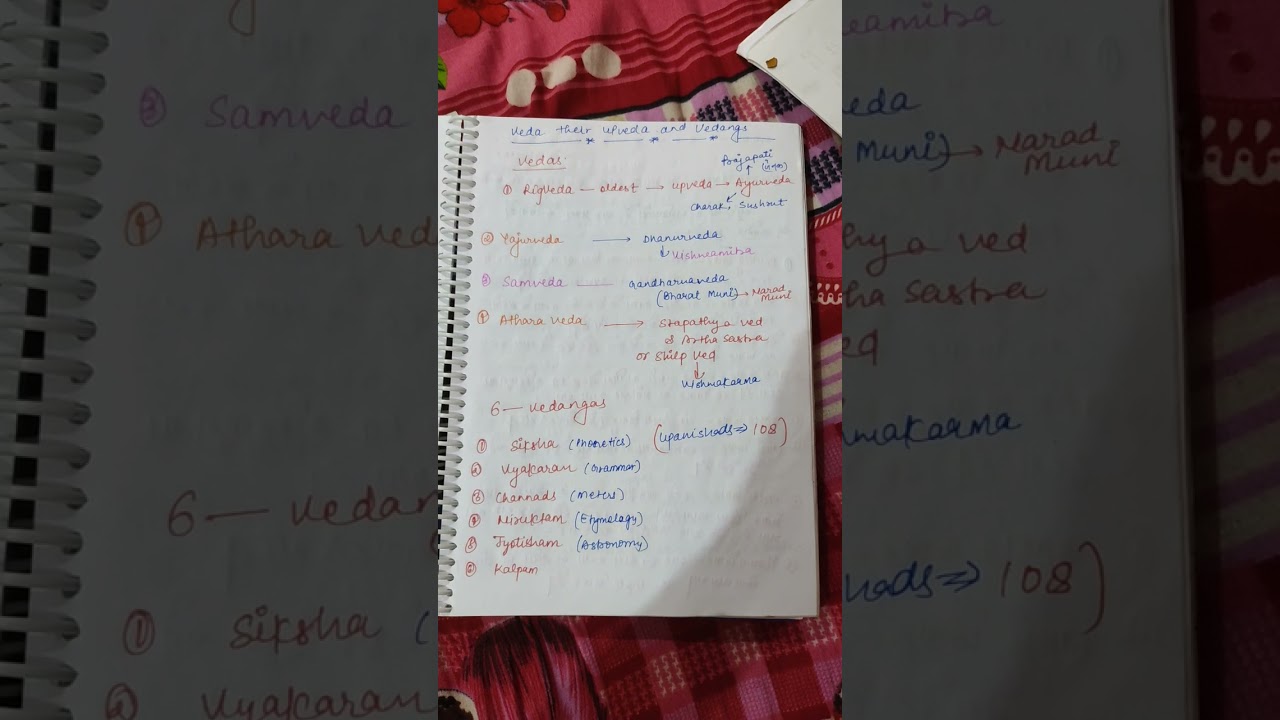 Veda their upveda and Vedangs
Vedas:
Prajapati
① Rigveda — oldest → upveda → Ayurveda
Charak, Sushrut
② Yajurveda → Dhanurveda
Vishwamitra
③ Samveda — Gandharvaveda
(Bharat Muni) → Narad Muni
④ Athara veda → Stapathya ved
& Artha Sastra
or Shilp Ved
Vishwakarma
6 — Vedangas
① Siksha (Phonetics) (upanishads ⇒ 108)
② Vyakaran (Grammar)
③ Channads (Meters)
④ Niruktam (Etymology)
⑤ Jyotisham (Astronomy)
⑥ Kalpam